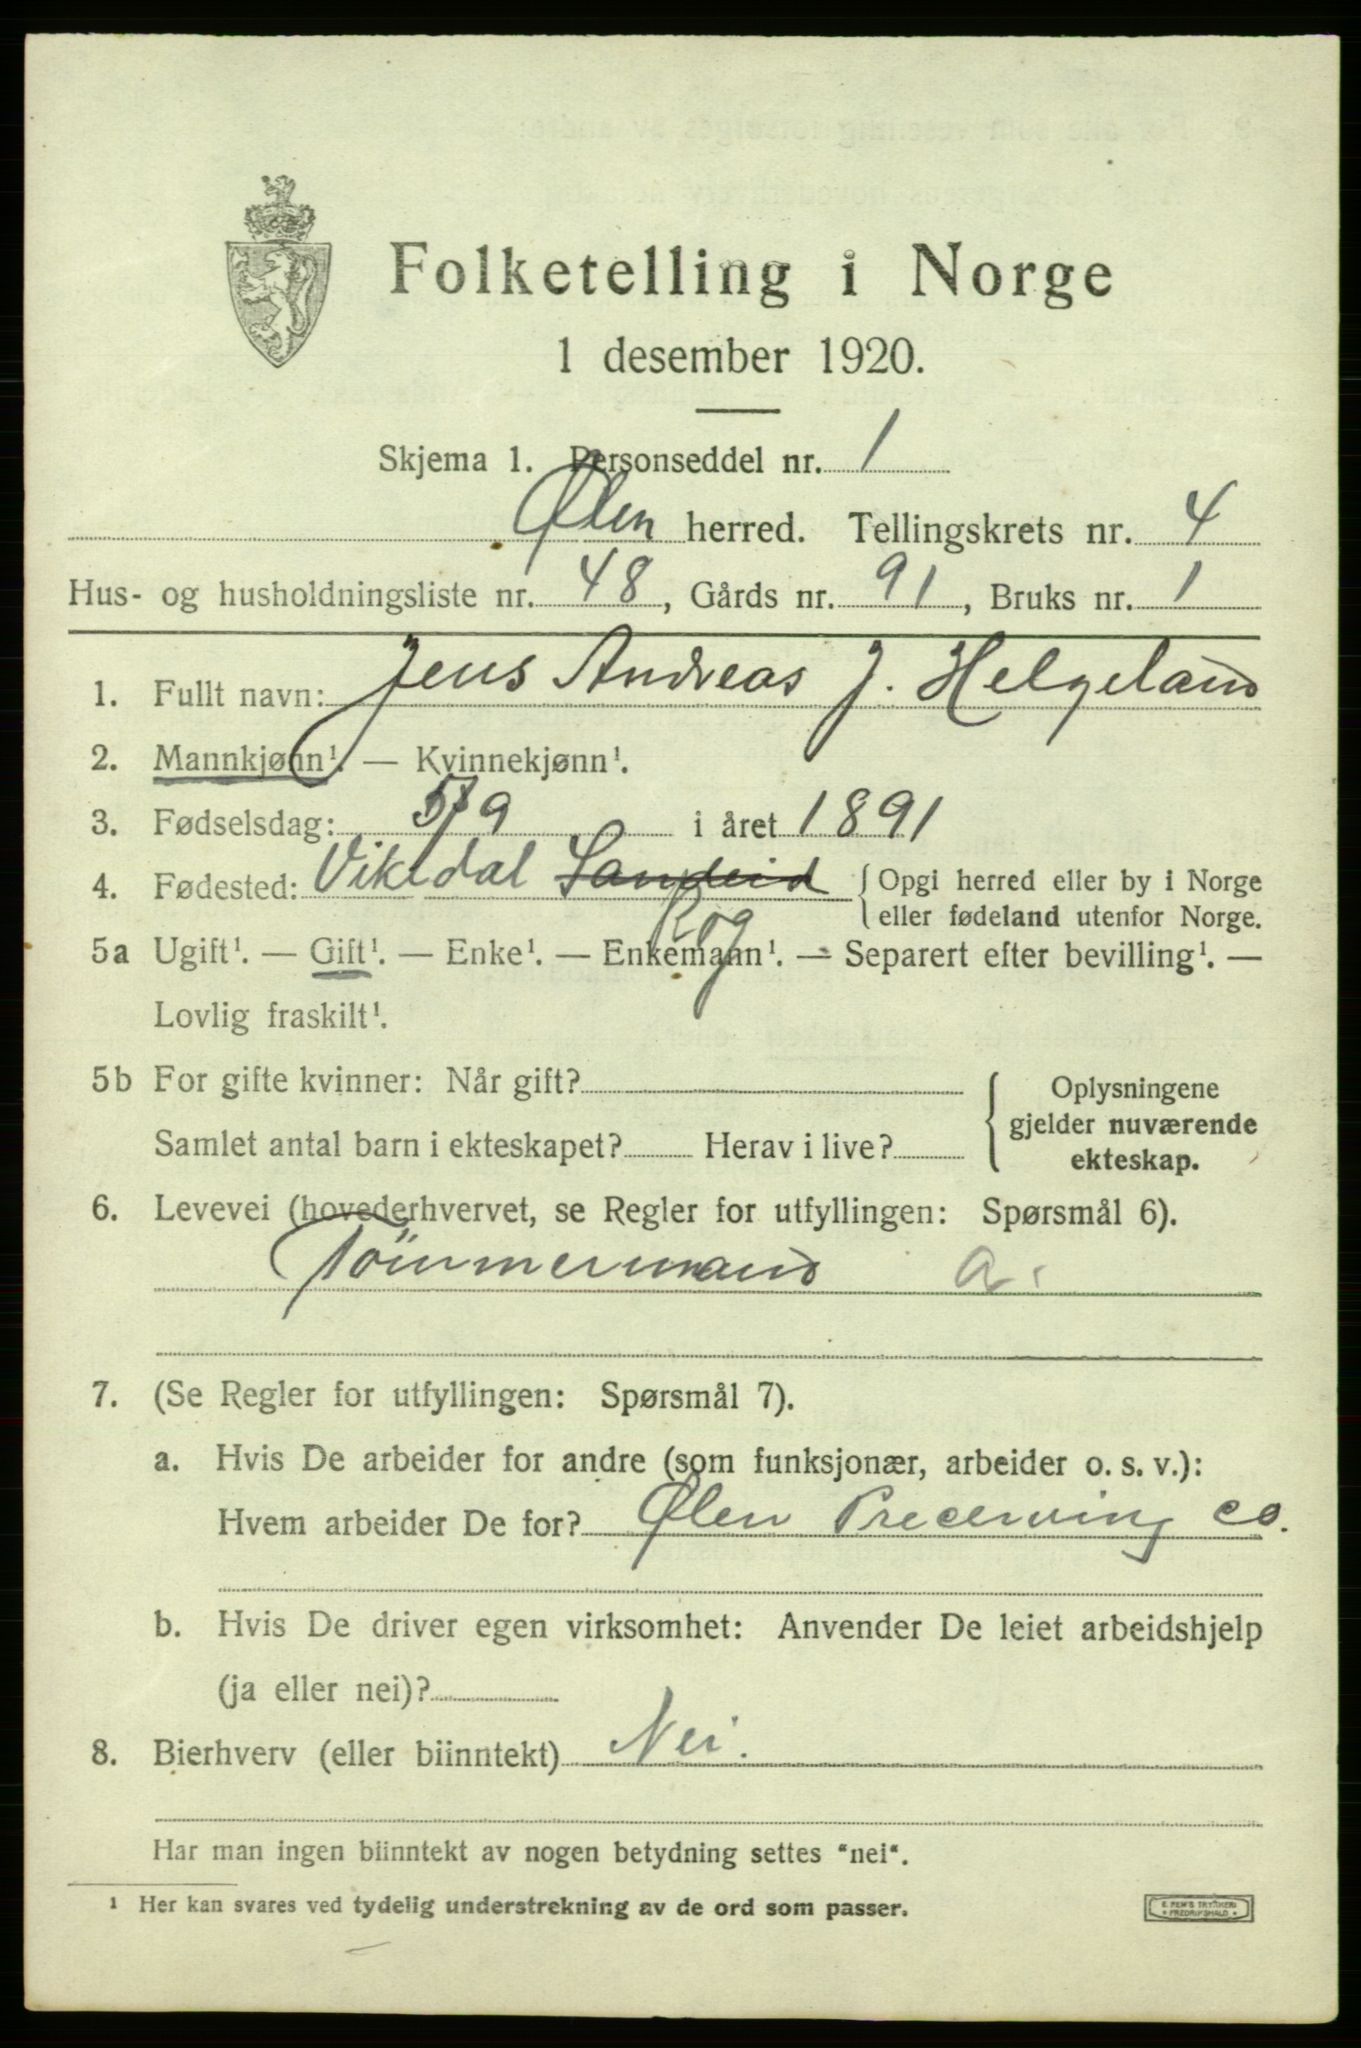 Folketelling i Norge
1 desember 1920.
Skjema 1. Personseddel nr. 1
Ølen herred. Tellingskrets nr. 4
Hus- og husholdningsliste nr. 48, Gårds nr. 91, Bruks nr. 1
1. Fullt navn: Jens Andreas J. Helgeland
2. Mannkjønn¹. — Kvinnekjønn¹.
3. Fødselsdag: 5/9 i året 1891
4. Fødested: Vikedal Sandeid { Opgi herred eller by i Norge
eller fødeland utenfor Norge.
Rog
5a Ugift¹. — Gift¹. — Enke¹. — Enkemann¹. — Separert efter bevilling¹. —
Lovlig fraskilt¹.
5b For gifte kvinner: Når gift?
Samlet antal barn i ekteskapet? Herav i live?
Oplysningene
gjelder nuværende
ekteskap.
6. Levevei (hovederhvervet, se Regler for utfyllingen: Spørsmål 6).
Tömmermand a.
7. (Se Regler for utfyllingen: Spørsmål 7).
a. Hvis De arbeider for andre (som funksjonær, arbeider o. s. v.):
Hvem arbeider De for? Ølen Precerving co.
b. Hvis De driver egen virksomhet: Anvender De leiet arbeidshjelp
(ja eller nei)?
8. Bierhverv (eller biinntekt) Nei.
Har man ingen biinntekt av nogen betydning settes "nei".
¹ Her kan svares ved tydelig understrekning av de ord som passer.
E. SEM'S TRYKKERI
FREDRIKSHALD